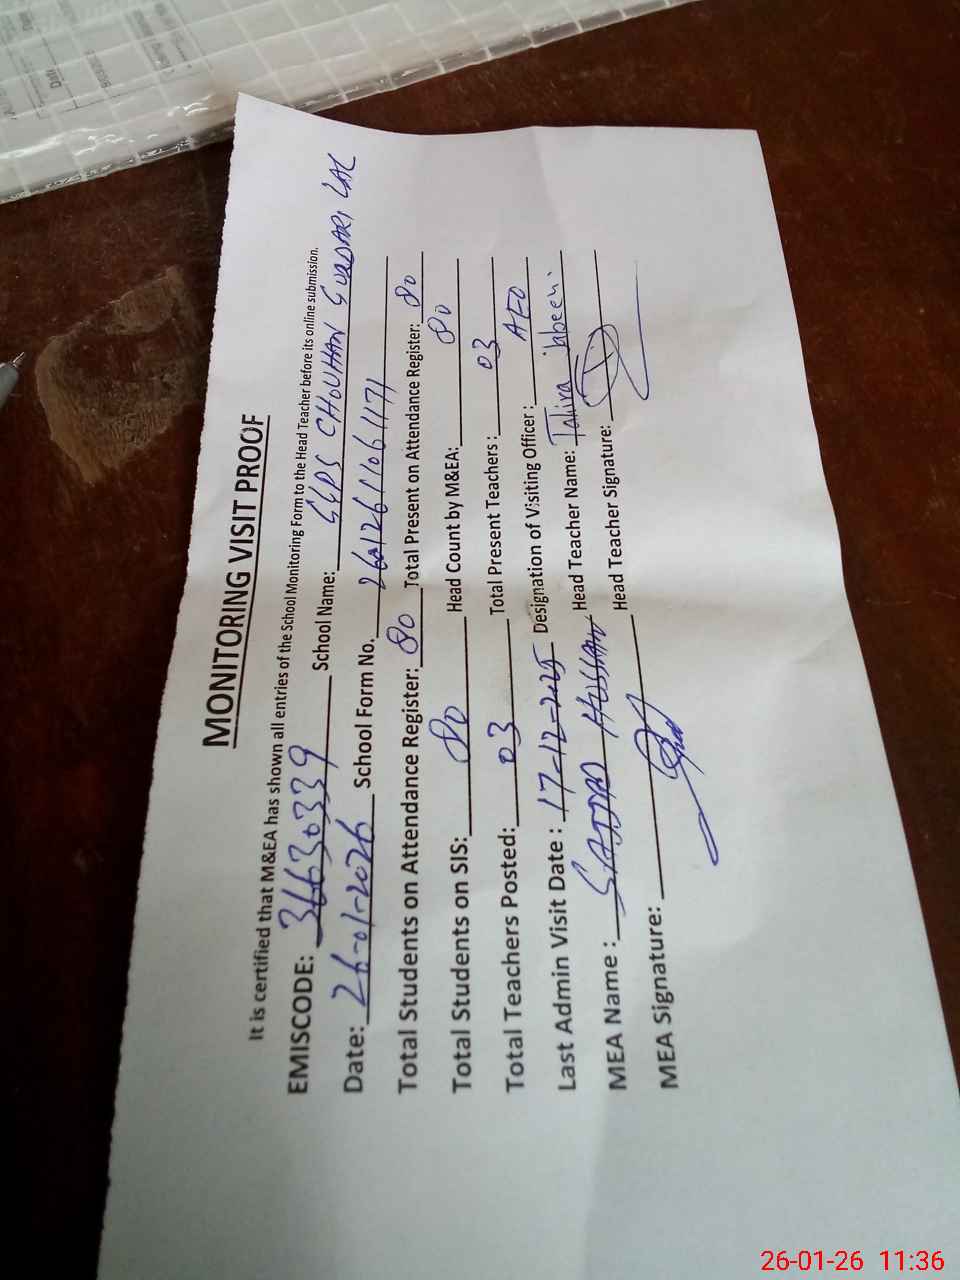 MONITORING VISIT PROOF
It is certified that M&EA has shown all entries of the School Monitoring Form to the Head Teacher before its online submission.
EMISCODE: 36630339 School Name: GGPS CHOUHAN GUDARI LAL
Date: 26-01-2026 School Form No. 26012611061171
Total Students on Attendance Register: 80 Total Present on Attendance Register: 80
Total Students on SIS: 80 Head Count by M&EA: 80
Total Teachers Posted: 03 Total Present Teachers: 03
Last Admin Visit Date: 17-12-2025 Designation of Visiting Officer: AEO
MEA Name: SAJJAD HUSSAIN Head Teacher Name: Tahira jabeen.
MEA Signature: Head Teacher Signature:
26-01-26 11:36